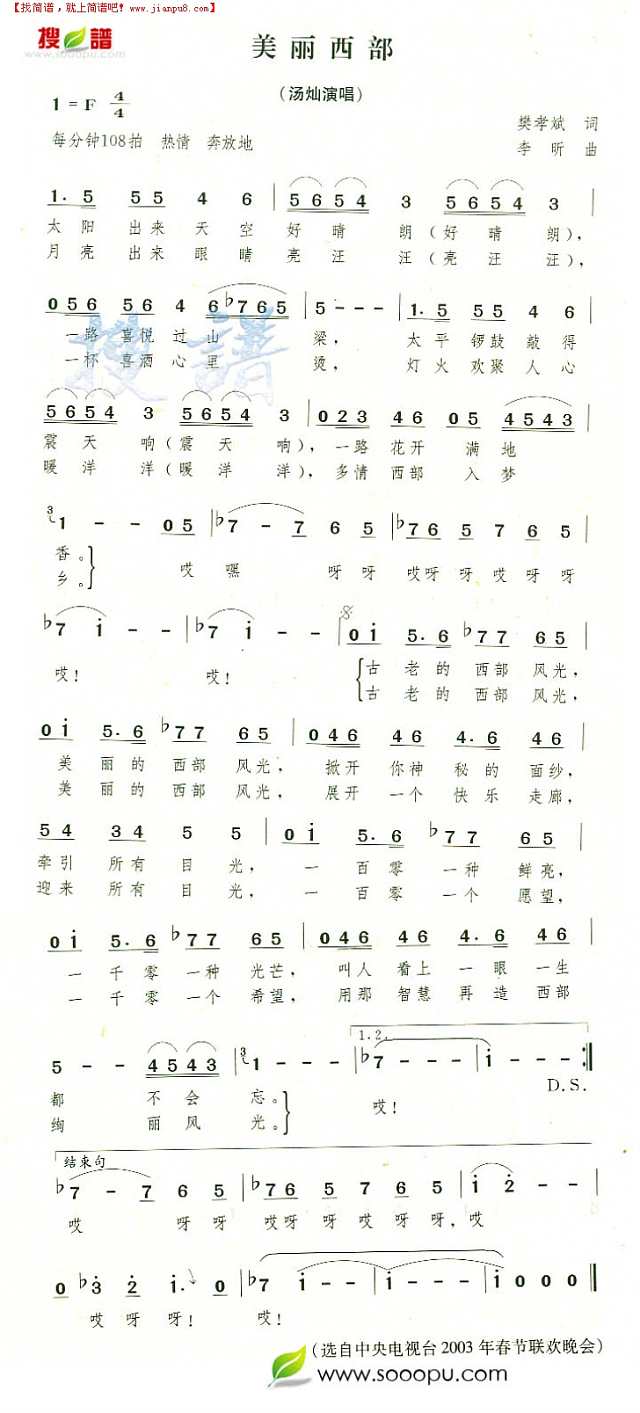 【找简谱，就上简谱吧！www.jianpu8.com】
搜谱
www.sooopu.com
美丽西部
（汤灿演唱）
1 = F 4/4
樊孝斌 词
每分钟108拍 热情 奔放地
李昕 曲
1. 5 5 5 4 6 | 5 6 5 4 3 5 6 5 4 3 |
太阳 出来 天空 好 晴 朗（好 晴 朗），
月亮 出来 眼睛 亮 汪 汪（亮 汪 汪），
0 5 6 5 6 4 6 ♭7 6 5 | 5 - - - | 1. 5 5 5 4 6 |
一路 喜悦 过 山 梁， 太平 锣鼓 敲得
一杯 喜酒 心 里 烫， 灯火 欢聚 人心
5 6 5 4 3 5 6 5 4 3 | 0 2 3 4 6 0 5 4 5 4 3 |
震 天 响（震 天 响），一路 花开 满 地
暖 洋 洋（暖 洋 洋），多情 西部 入 梦
3 1 - - 0 5 | ♭7 - 7 6 5 | ♭7 6 5 7 6 5 |
香。 哎 嘿 呀 呀 哎呀 呀哎 呀呀
乡。
♭7 i - - | ♭7 i - - | 0 i 5. 6 ♭7 7 6 5 |
哎！ 哎！ 古 老的 西部 风光，
古 老的 西部 风光，
0 i 5. 6 ♭7 7 6 5 | 0 4 6 4 6 4. 6 4 6 |
美 丽的 西部 风光， 掀开 你神 秘的 面纱，
美 丽的 西部 风光， 展开 一个 快乐 走廊，
5 4 3 4 5 5 | 0 i 5. 6 ♭7 7 6 5 |
牵引 所有 目 光， 一 百零 一种 鲜亮，
迎来 所有 目 光， 一 百零 一个 愿望，
0 i 5. 6 ♭7 7 6 5 | 0 4 6 4 6 4. 6 4 6 |
一 千零 一种 光芒， 叫人 看上 一眼 一生
一 千零 一个 希望， 用那 智慧 再造 西部
1.2.
5 - - 4 5 4 3 | 3 1 - - - | ♭7 - - i | i - - - :‖
D.S.
都 不 会 忘。 哎！
绚 丽 风 光。
结束句
♭7 - 7 6 5 | ♭7 6 5 7 6 5 | i 2 - - |
哎 呀 呀 哎呀 呀哎 呀呀，哎
0 ♭3 2 i. 0 | ♭7 i - - | i - - - | i 0 0 0 ‖
哎 呀 呀！ 哎！
（选自中央电视台 2003 年春节联欢晚会）
www.sooopu.com